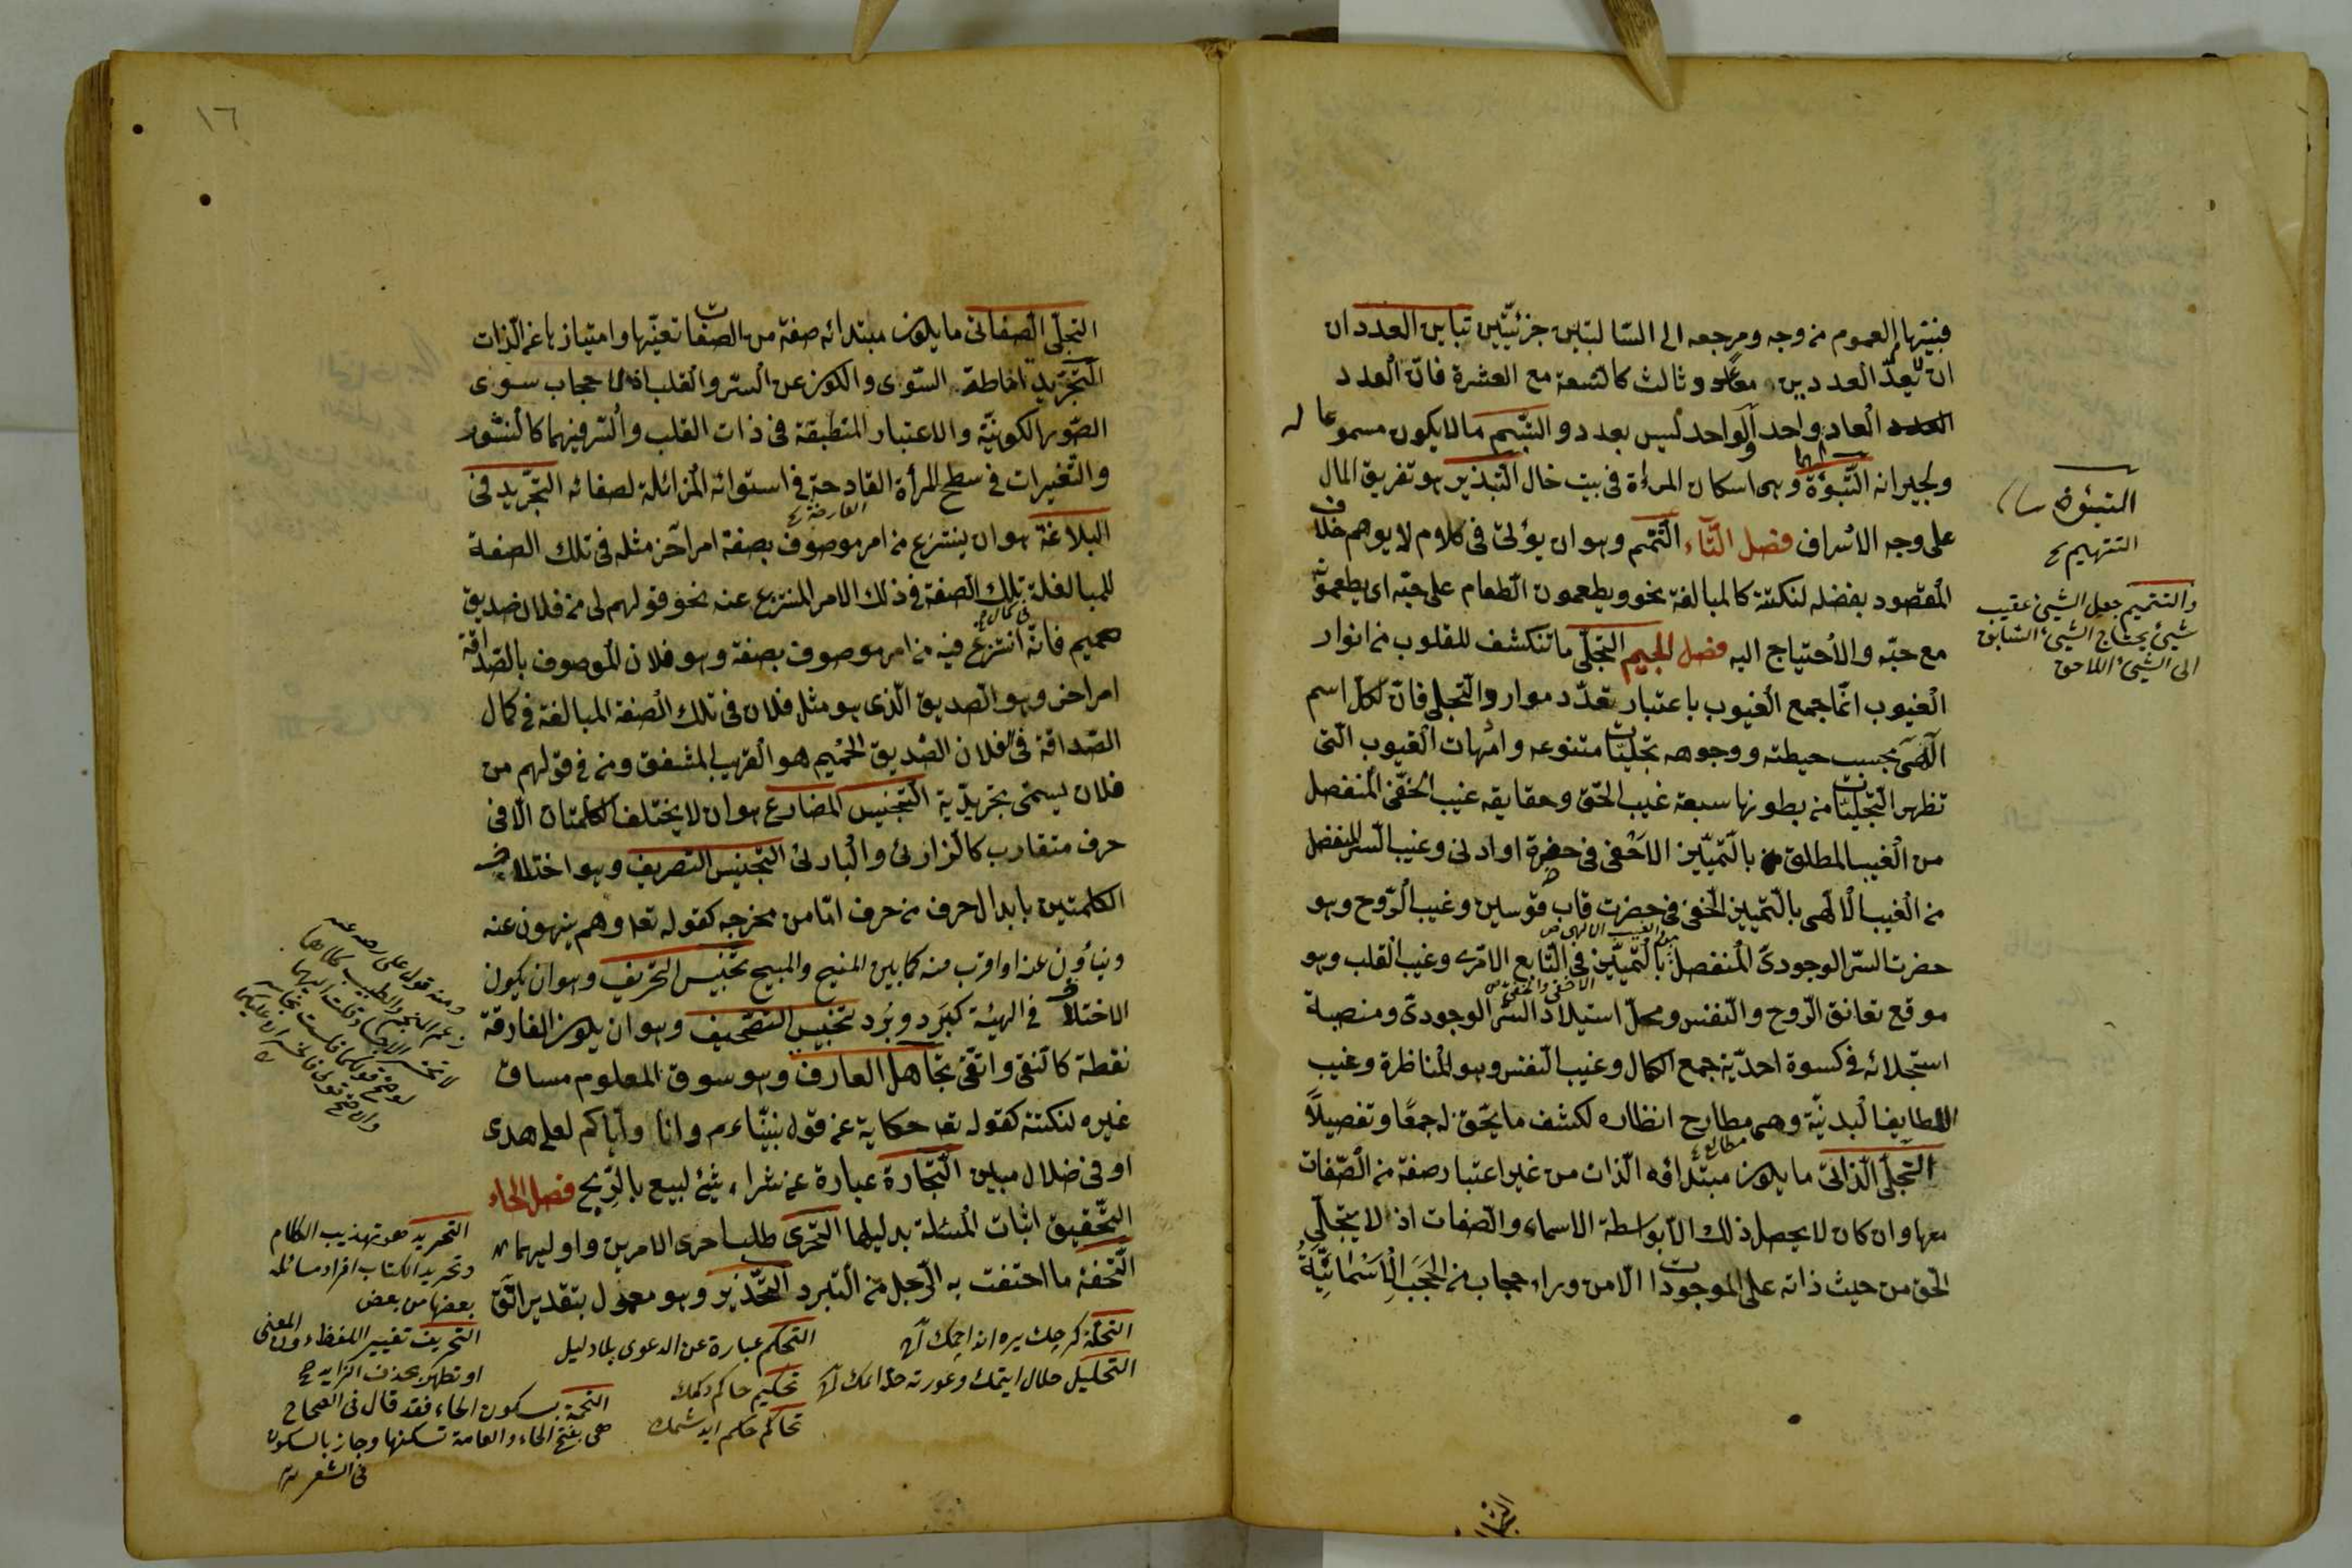 فبينهما العموم من وجه ومرجعه الى السالبتين جزئيتين تباين العدد ان
ان لا يعدّ العددين معًا عدد ثالث كالتسعة مع العشرة فانّ العدد
العاد واحد والواحد ليس بعدد والتبسّم مالايكون مسموعا له
ولجيرانه التبوّة وهى اسكان المرءة فى بيت خال التبذير هو تفريق المال
على وجه الاسراف فصل التّاء التتميم وهو ان يؤتى فى كلام لا يوهم خلاف
المقصود بفضله لنكتة كالمبالغة نحو ويطعمون الطّعام على حبّه اى يطعمونه
مع حبّه والاحتياج اليه فصل الجيم التجلّى ما تنكشف للقلوب من انوار
الغيوب انّما جمع الغيوب باعتبار تعدّد موارد التجلى فانّ لكلّ اسم
آلهى بحسب حيطته ووجوهه تجليّات متنوعه وامّهات الغيوب الّتى
تظهر التجليّات من بطونها سبعة غيب الحقّ وحقايقه غيب الخفّى المنفصل
من الغيب المطلق بالتميّيز الاخفى فى حضرة او ادنى وغيب السّر المنفصل
من الغيب الالهى بالتمييز الخفى فى حضرت قاب قوسين وغيب الرّوح وهو
حضرت السّر الوجودىّ المنفصل بالتميّيز فى التّابع الامرى وغيب القلب وهو
موقع تعانق الرّوح والنّفس ومحلّ استيلاد السّر الوجودىّ ومنصبة
استجلائه فى كسوة احديّة جمع الكمال وغيب النّفس وهو المناظرة وغيب
اللطايف البدنيّة وهى مطارح انظاره لكشف ما يحّق له جمعًا وتفصيلًا
التجلّى الذّاتى ما يكون مبتداؤه الّذات من غير اعتبار صفة من الصّفات
معها وان كان لا يحصل ذلك الّا بواسطة الاسماء والصّفات اذ لا يتجلّى
الحق من حيث ذاته على الموجودات الّا من وراء حجاب من الحجب الاسمائيّة
التبئوة
التتهيم
والتتميم جعل الشيئ عقيب
شيئ يحتاج الشيئ السّابق
الى الشيئ اللاحق
١٦
التجلّى الصفاتى ما يكون مبتدائه صفة من الصفات تعيّنها وامتيازها عن الذات
التّجريد اماطة السّوى والكون عن السّر والقلب اذ لا حجاب سوى
الصّور الكونيّة والاعتبار المنطبقة فى ذات القلب والسّر فيهما كالنشّور
والتّغيرات فى سطح المرأة القادحة فى استوائه المزائلة لصفائه التجّريد فى
البلاغة هو ان ينتزع من امر موصوف بصفة امر آخر مثله فى تلك الصفة
للمبالغة تلك الصفة فى ذلك الامر المنتزع عنه نحو قولهم لى من فلان صديق
حميم فانّه انتزع فيه من امر موصوف بصفة وهو فلان الموصوف بالصّداقة
امر اخر وهو الصديق الّذى هو مثل فلان فى تلك الصفة المبالغة فى كمال
الصّداقة فى فلان الصّديق الحميم هو القريب المشفق ومن فى قولهم من
فلان يسمّى تجريدّية التّجنيس المضارع هو ان لا يختلف الكلمتان الّا فى
حرف متقارب كالزارئ والبارئ التجنيس التصريف وهو اختلاف
الكلمتين بابدال حرف من حرف امّا من مخرجه كقوله تعا وهم ينهون عنه
وينأون عنه او اقرب منه كما بين المنيح والمبيح تجنّيس التحريف وهو ان يكون
الاختلاف فى الهيئة كبَرد وبُرد تجنيس التصّحيف وهو ان يكون الفارقة
نقطة كانقى واتقى تجاهل العارف وهو سوق المعلوم مساق
غيره لنكتة كقوله تعا حكاية عن قول نبيّناءم وانا واياكم لعلى هدى
او فى ضلال مبين التّجارة عبارة عن شراء شئ لبيع بالرّبح فصل الحاء
التّحقيق اثبات المسئلة بدليلها التحرّى طلب احرى الامرين واوليهما
التّحفة ما احتفت به الرّجل من البّر التّحذير وهو معمول بتقدير اتّق
التحكم عبارة عن الدعوى بلا دليل
التحريد هو تهذيب الكلام
وتحريد الكتاب افراد مسائله
بعضها من بعض
التحريف تغيير اللفظ دون المعنى
التخمة بسكون الخاء فقد قال فى الصحاح
هى بفتح الخاء والعامة تسكنها وجاز بالسكون
فى الشعر